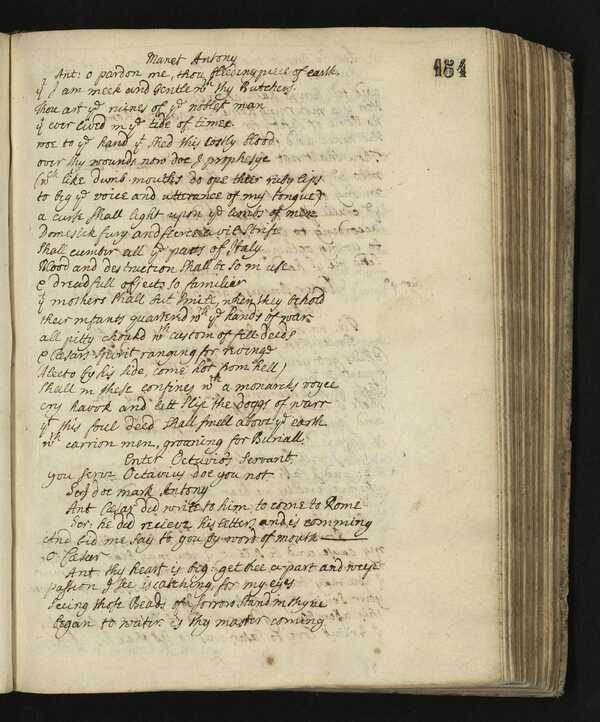 Manet Antony
154
Ant: o pardon me, thou bleeding piece of earth.
yt I am meek and Gentle wth thy Butchers.
Thou art ye ruines of ye noblest man
yt ever lived in ye tide of times.
woe to ye hand yt shed this costly blood.
over thy wounds now doe I prophesye
(wch like dumb mouthes do ope their ruby lips
to beg ye voice and utterance of my tongue)
a curse shall light upon ye limbs of men
Domestick fury and fierce civil strife
Shall cumber all ye parts of Italy
Blood and destruction shall be so in use
& dreadfull objects so familier
yt mothers shall but smile, when they behold
their infants quarterd wth ye hands of war
all pitty choakd wth custom of fell deeds
& Cæsars spirit ranging for revenge
Alecto by his side, come hot from hell)
Shall in these confines wth a monarchs voyce
cry havok and lett slip the doggs of warr
yt this foul deed shall smell above ye earth
wth carrion men, groaning for Buriall.
Enter Octavio's Servant.
you serve Octavius doe you not
Ser I doe mark Antony
Ant Cæsar did write to him to come to Rome
Ser: he did recieve his letters and is comming
And bid me say to you by word of mouth
o Cæsar
Ant thy heart is big: get thee a-part and weepe
passion I see is catching, for my eyes
seeing those Beads of sorrow stand in thyne
Began to water. is thy master coming